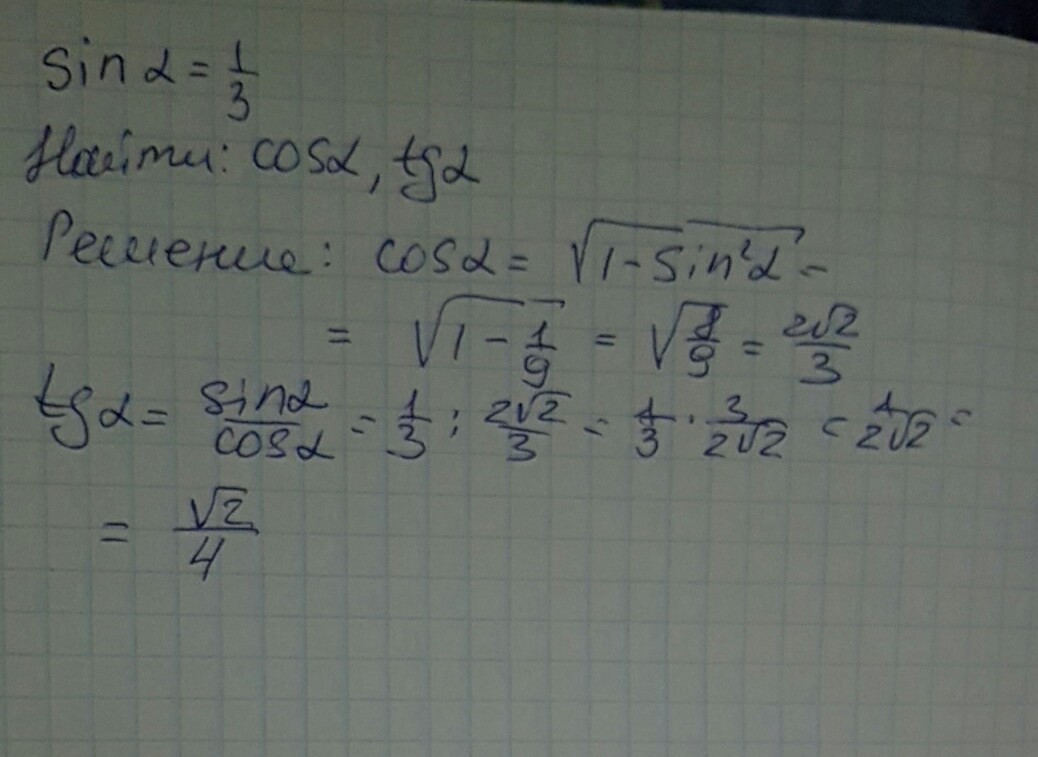 sin α = 1/3
Найти: cosα, tgα
Решение: cosα = √(1-sin²α) =
= √(1 - 1/9) = √(8/9) = 2√2/3
tgα = sinα/cosα = 1/3 : 2√2/3 = 1/3 · 3/2√2 = 1/2√2 =
= √2/4